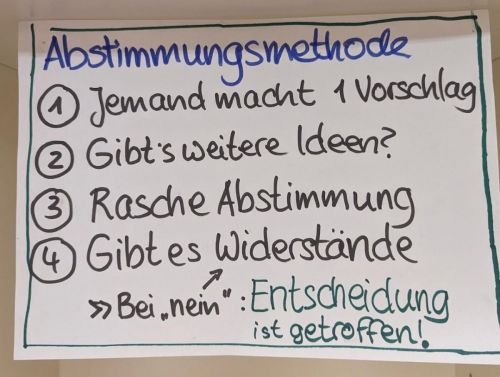 Abstimmungsmethode
① Jemand macht 1 Vorschlag
② Gibt's weitere Ideen?
③ Rasche Abstimmung
④ Gibt es Widerstände
» Bei „nein“ : Entscheidung
ist getroffen!